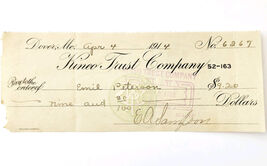 Dover, Me. Apr 4 1914 No. 6267
Kineo Trust Company 52-163
Pay to the order of Emil Peterson $9.20
nine and 20/100 Dollars